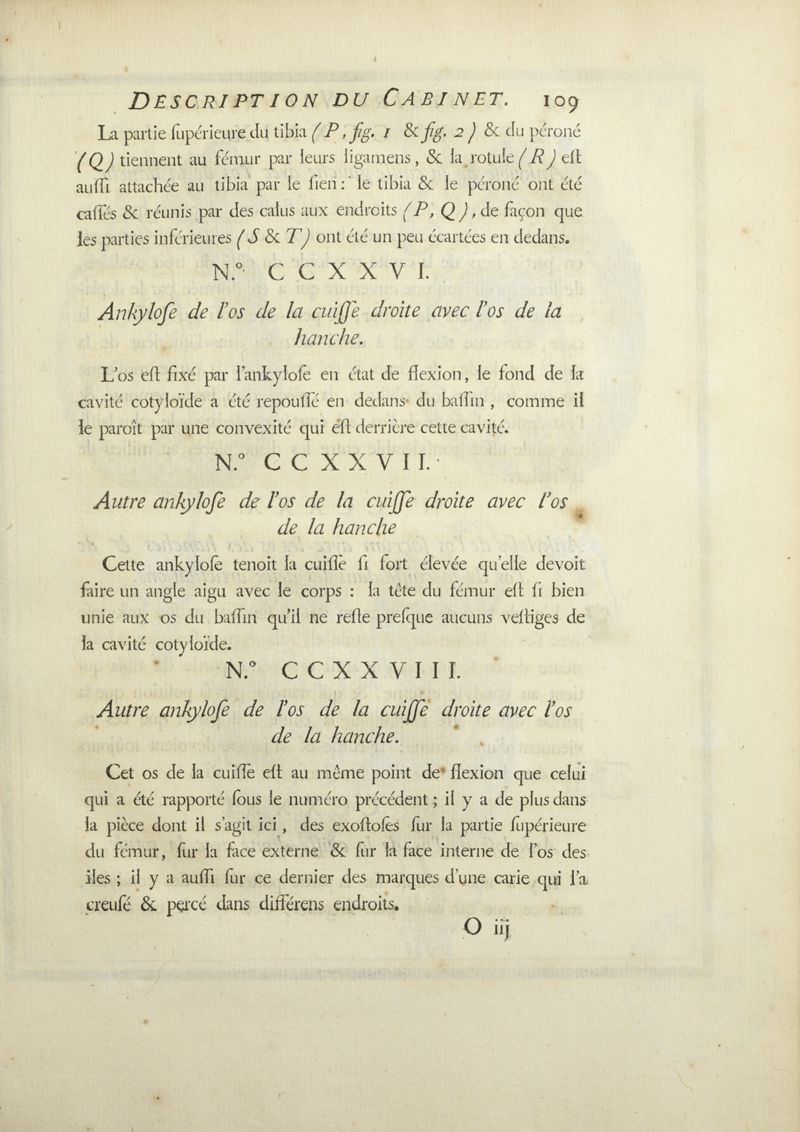 DESCRIPTION DU CABINET. 109
La partie ſupérieure du tibia (P, fig. 1 & fig. 2) & du péroné
(Q) tiennent au fémur par leurs ligamens, & la rotule (R) eſt
auſſi attachée au tibia par le ſien : le tibia & le péroné ont été
caſſés & réunis par des calus aux endroits (P, Q), de façon que
les parties inférieures (S & T) ont été un peu écartées en dedans.
N.° CCXXVI.
Ankyloſe de l'os de la cuiſſe droite avec l'os de la
hanche.
L'os eſt fixé par l'ankyloſe en état de flexion, le fond de la
cavité cotyloïde a été repouſſé en dedans du baſſin, comme il
le paroît par une convexité qui eſt derrière cette cavité.
N.° CCXXVII.
Autre ankyloſe de l'os de la cuiſſe droite avec l'os
de la hanche
Cette ankyloſe tenoit la cuiſſe ſi fort élevée qu'elle devoit
faire un angle aigu avec le corps : la tête du fémur eſt ſi bien
unie aux os du baſſin qu'il ne reſte preſque aucuns veſtiges de
la cavité cotyloïde.
N.° CCXXVIII.
Autre ankyloſe de l'os de la cuiſſe droite avec l'os
de la hanche.
Cet os de la cuiſſe eſt au même point de flexion que celui
qui a été rapporté ſous le numéro précédent ; il y a de plus dans
la pièce dont il s'agit ici, des exoſtoſes ſur la partie ſupérieure
du fémur, ſur la face externe & ſur la face interne de l'os des
iles ; il y a auſſi ſur ce dernier des marques d'une carie qui l'a
creuſé & percé dans différens endroits.
O iij